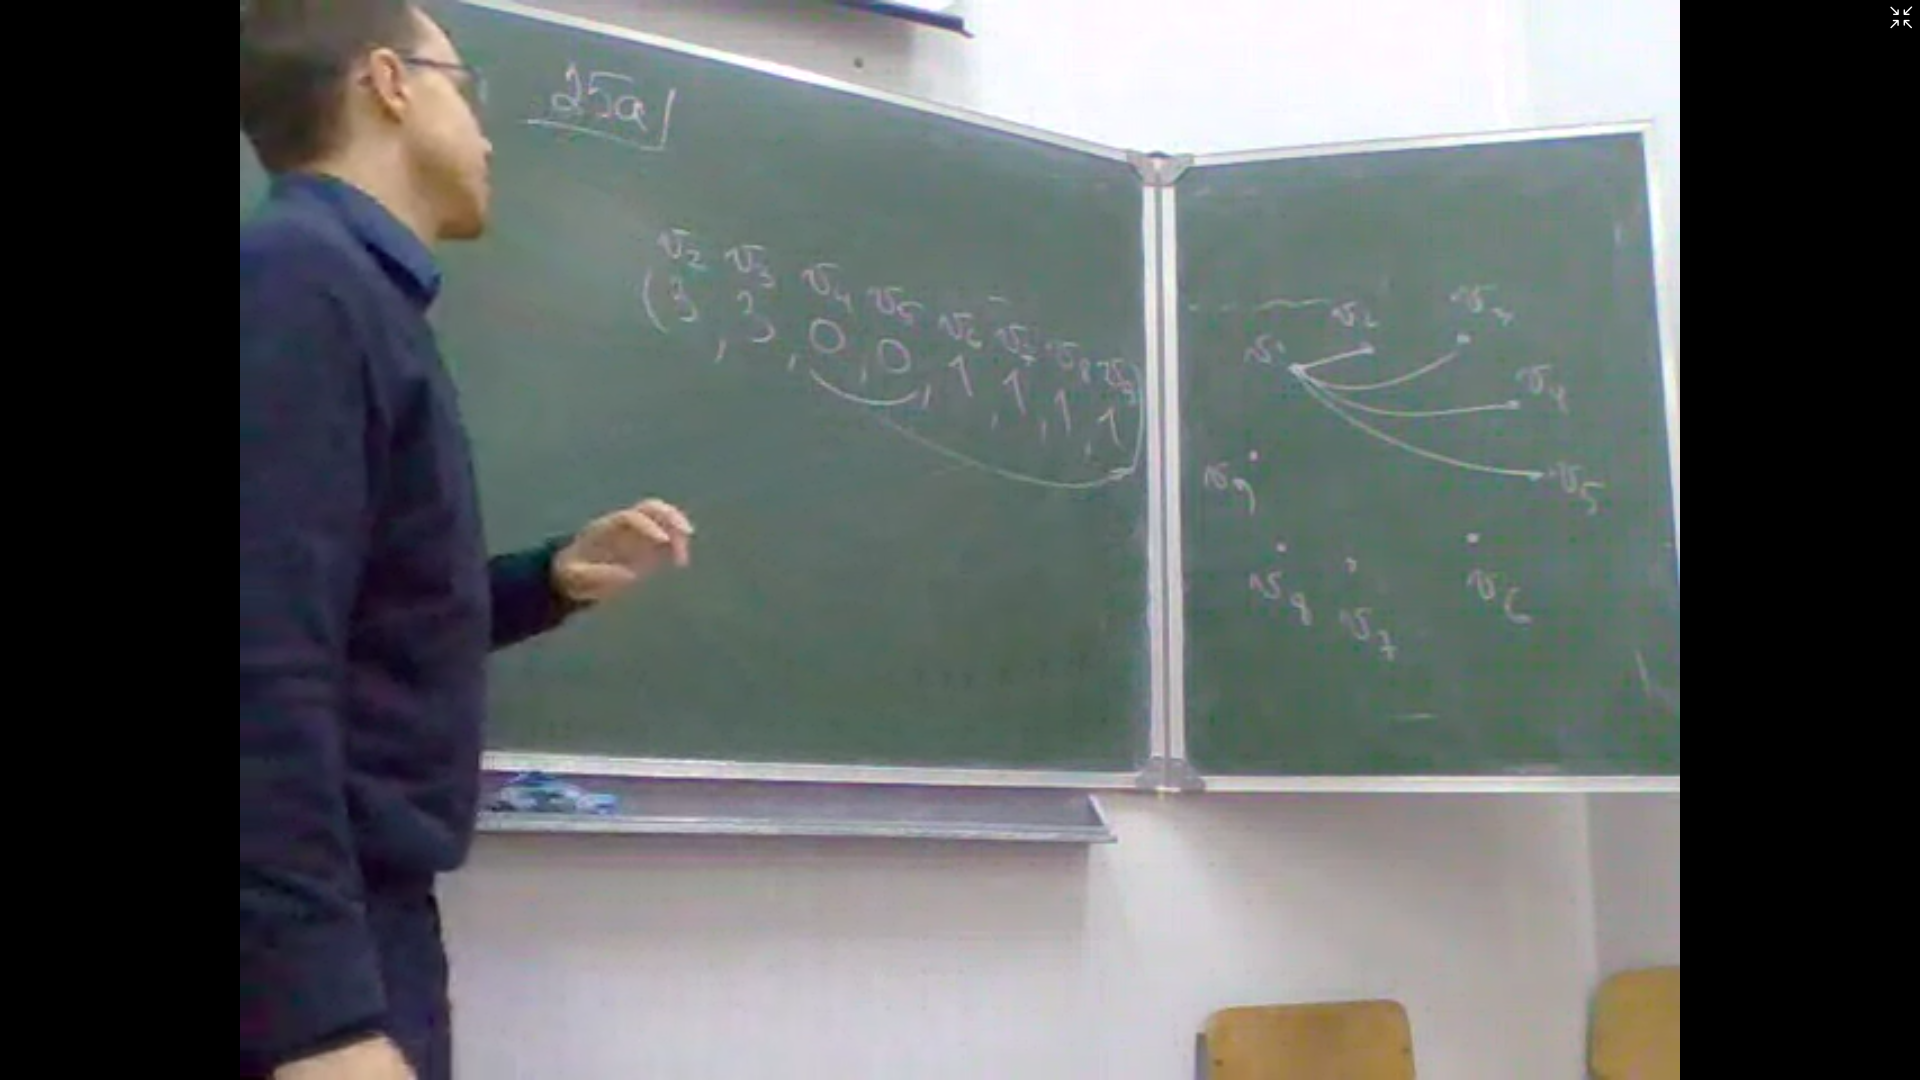 25a
v₂ v₃ v₄ v₅ v₆ v₇ v₈ v₉
(3, 3, 0, 0, 1, 1, 1, 1)
v₁ v₂ v₃
v₄
v₉ v₅
v₈ v₇ v₆